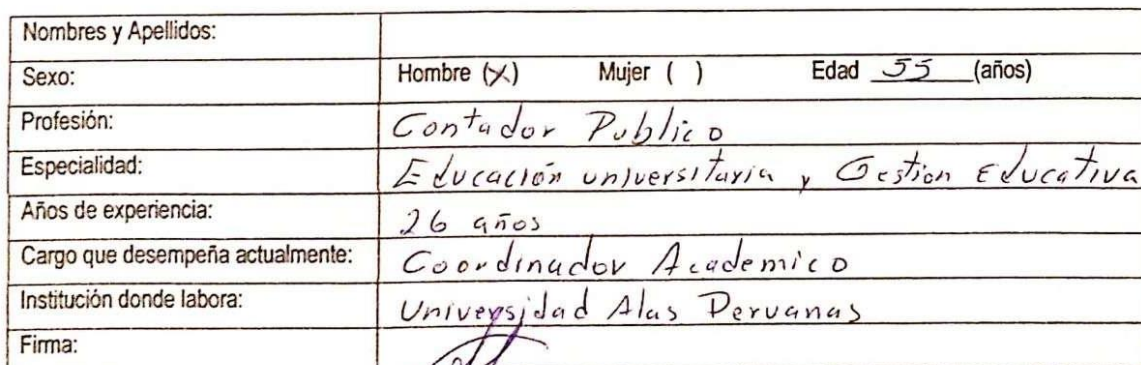 Nombres y Apellidos:
Sexo: Hombre (X) Mujer ( ) Edad 55 (años)
Profesión: Contador Publico
Especialidad: Educación universitaria y Gestion Educativa
Años de experiencia: 26 años
Cargo que desempeña actualmente: Coordinador Academico
Institución donde labora: Universidad Alas Peruanas
Firma: